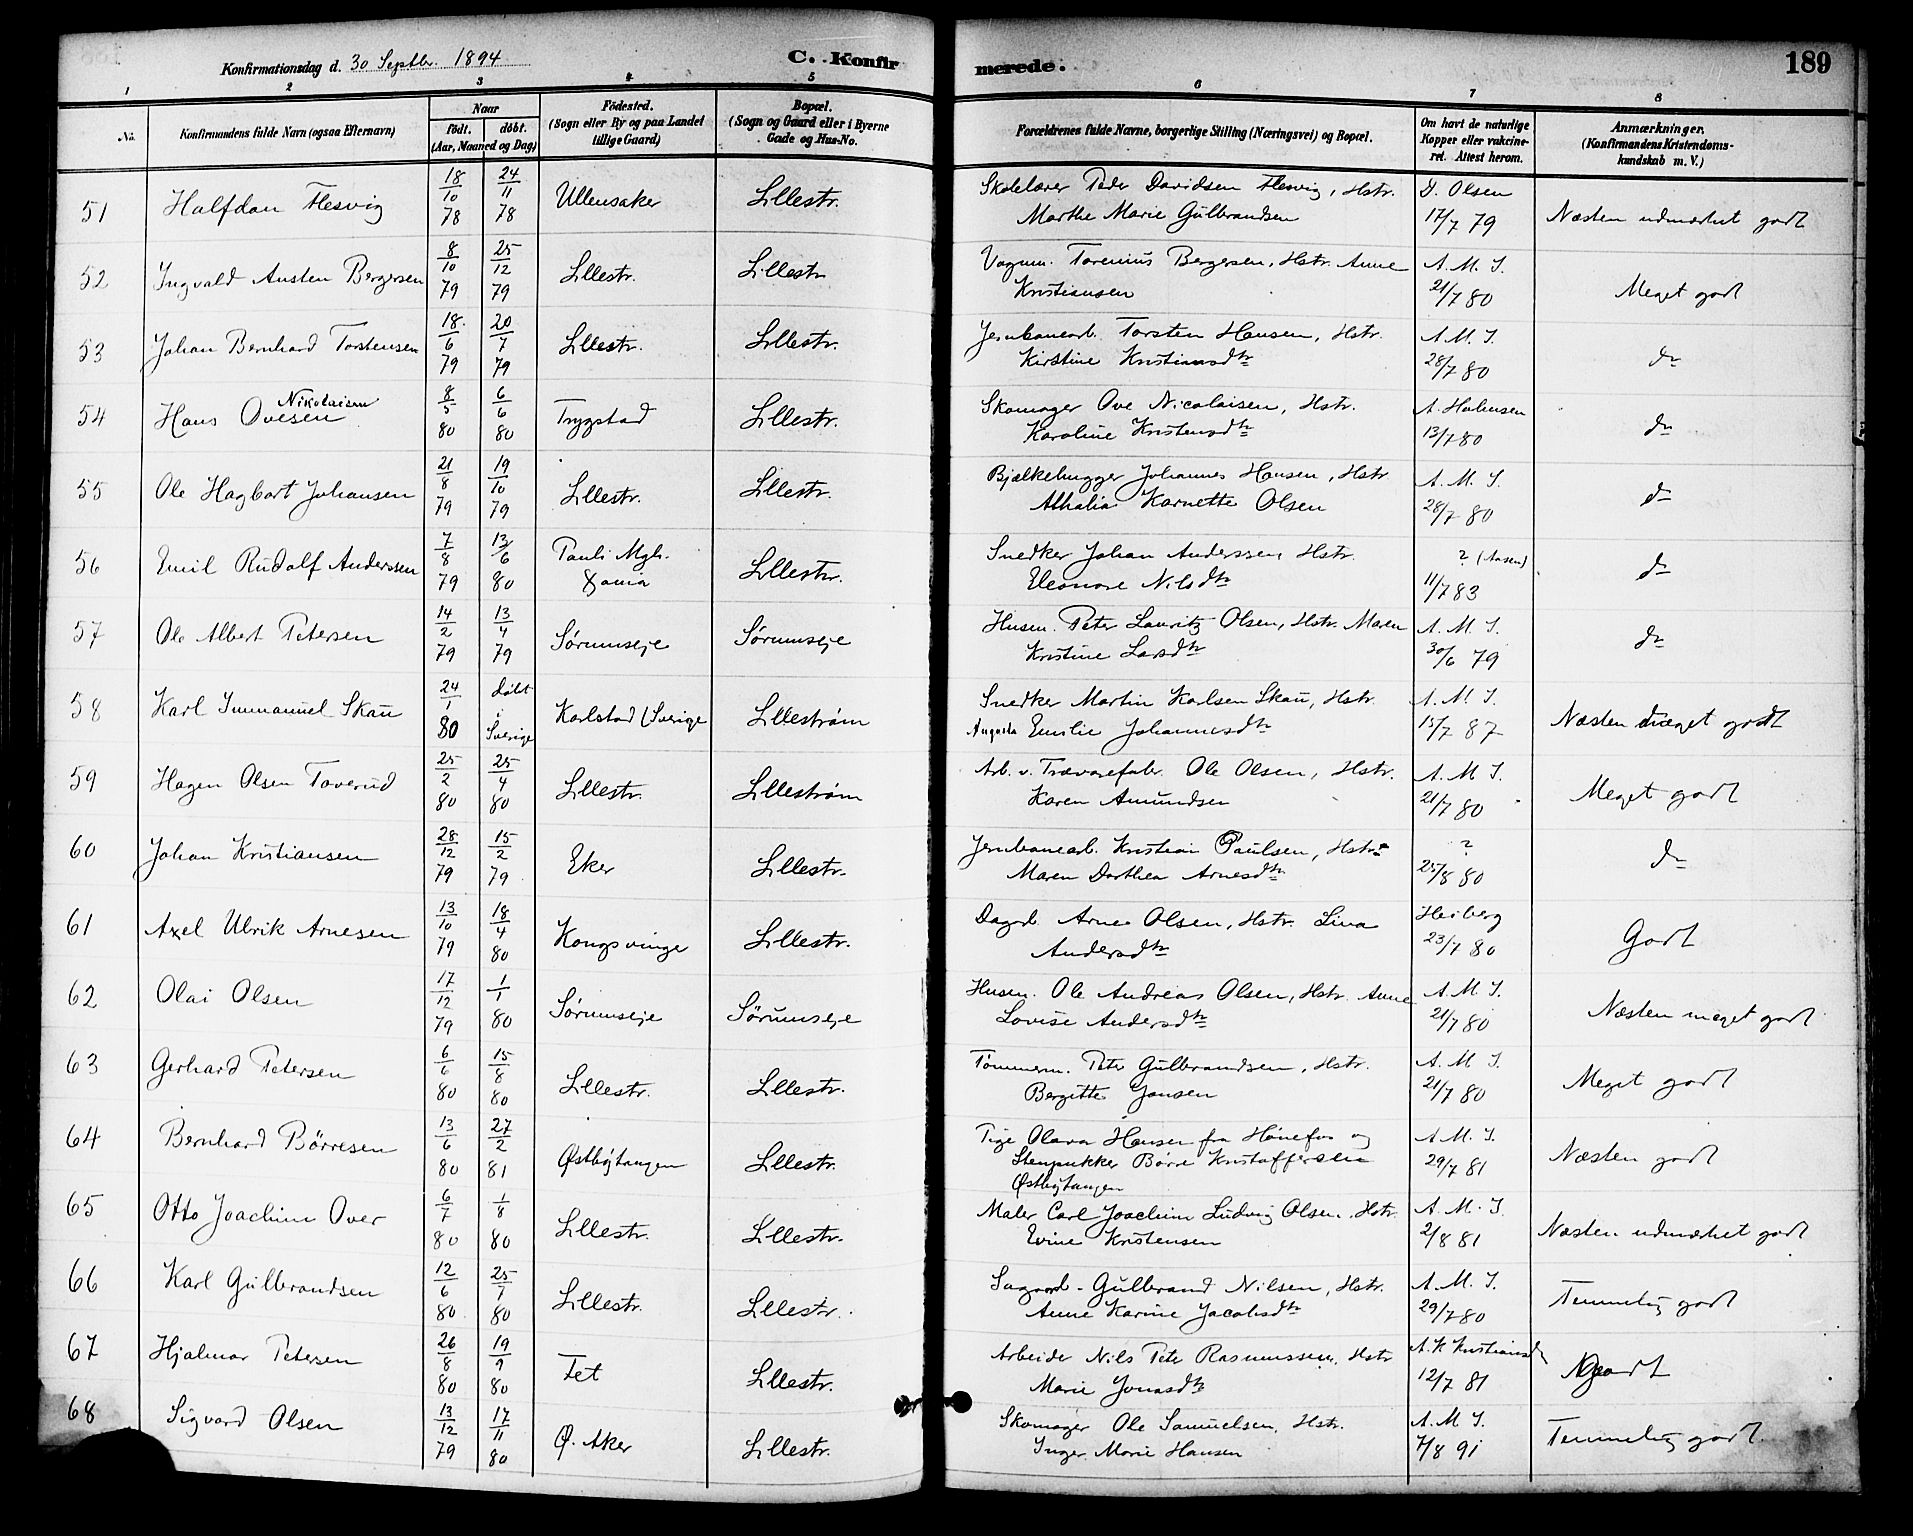 Konfirmationsdag d. 30 Septbr. 1894 C. Konfirmerede. 189
1 2 3 4 5 6 7 8
No. Konfirmandens fulde Navn (ogsaa Efternavn) Naar födt. döbt. (Aar, Maaned og Dag) Födested. (Sogn eller By og paa Landet tillige Gaard) Bopæl. (Sogn og Gaard eller i Byerne Gade og Hus-No. Forældrenes fulde Navne, borgerlige Stilling (Næringsvei) og Bopæl. Om havt de naturlige Kopper eller vakcineret. Attest herom. Anmærkninger. (Konfirmandens Kristendomskundskab m. V.)
51 Halfdan Flesvig 18/10 78 24/11 78 Ullensaker Lillestr. Skolelærer Peder Davidsen Flesvig, Hstr. Marthe Marie Gulbrandsen D. Olsen 17/7 79 Næsten udmærket godt
52 Ingvald Austen Bergersen 8/10 79 25/12 79 Lillestr. Lillestr Vognm. Torenius Bergersen, Hstr. Anne Kristiansen A. M. I. 21/7 80 Meget godt
53 Johan Bernhard Torstensen 18/6 79 20/7 79 Lillestr. Lillestr. Jernbanearb. Torsten Hansen, Hstr. Kirstine Kristiansdtr A. M. I. 28/7 80 do
54 Hans Ovesen Nikolaisen 8/5 80 6/6 80 Trygstad Lillestr. Skomager Ove Nicolaisen, Hstr. Karoline Kristensdtr A. Halvensen 13/7 80 do
55 Ole Hagbart Johansen 21/8 79 19/10 79 Lillestr. Lillestr. Bjælkehugger Johannes Hansen, Hstr Athalia Karnette Olsen A. M. I. 28/7 80 do
56 Emil Rudolf Anderssen 7/8 79 13/6 80 Pauli Mgh. Xania Lillestr. Snedker Johan Anderssen, Hstr. Eleonore Nilsdtr ? (Aasen) 11/7 83 do
57 Ole Albert Petersen 14/2 79 13/4 79 Sørumseje Sørumseje Husm. Peter Lauritz Olsen, Hstr. Maren Kristine Larsdtr A. M. I. 30/6 79 do
58 Karl Immanuel Skau 24/1 80 døbt i Sverige Karlstad (Sverige Lillestrøm Snedker Martin Karlsen Skau, Hstr. Augusta Emilie Johannesdtr A. M. I. 15/7 87 Næsten meget godt
59 Hagen Olsen Toverud 25/2 80 25/4 80 Lillestr. Lillestrøm Arb. v. Trævarefabr. Ole Olsen, Hstr. Karen Amundsen A. M. I. 21/7 80 Meget godt
60 Johan Kristiansen 28/12 79 15/2 79 Eker Lillestr. Jernbanearb. Kristian Paulsen, Hstr. Maren Dorthea Arnesdtr ? 25/8 80 do
61 Axel Ulrik Arnesen 13/10 79 18/4 80 Kongsvinge Lillestr. Dagarb. Arne Olsen, Hstr. Lina Andersdtr Heiberg 23/7 80 Godt
62 Olai Olsen 17/12 79 1/1 80 Sørumseje Sørumseje Husm. Ole Andreas Olsen, Hstr. Anne Lovise Andersdtr A. M. I. 21/7 80 Næsten meget godt
63 Gerhard Petersen 6/6 80 15/8 80 Lillestr. Lillestr. Tømmerm. Peter Gulbrandsen, Hstr. Bergitte Jansen A. M. I. 21/7 80 Meget godt
64 Bernhard Börresen 13/6 80 27/2 81 Østbytangen Lillestr. Pige Olava Hansen fra Hønefos og Stenpukker Børre Kristoffersen Østbytangen A. M. I. 29/7 81 Næsten godt
65 Otto Joachim Over 6/7 80 1/8 80 Lillestr. Lillestr. Maler Carl Joachim Ludvig Olsen, Hstr. Evine Kristensen A. M. I. 2/8 81 Næsten udmærket godt
66 Karl Gulbrandsen 12/6 80 25/7 80 Lillestr. Lillestr. Sagarb. Gulbrand Nilsen, Hstr. Anne Karine Jacobsdtr A. M. I. 29/7 80 Temmelig godt
67 Hjalmar Petersen 26/8 80 19/9 80 Fet Lillestr. Arbeider Nils Peter Rasmussen, Hstr Marie Jonasdtr A. K Kristians 12/7 81 Godt
68 Sigvard Olsen 13/12 79 17/11 80 Ø. Aker Lillestr. Skomager Ole Samuelsen, Hstr. Inger Marie Hansen A. M I. 7/8 91 Temmelig godt.